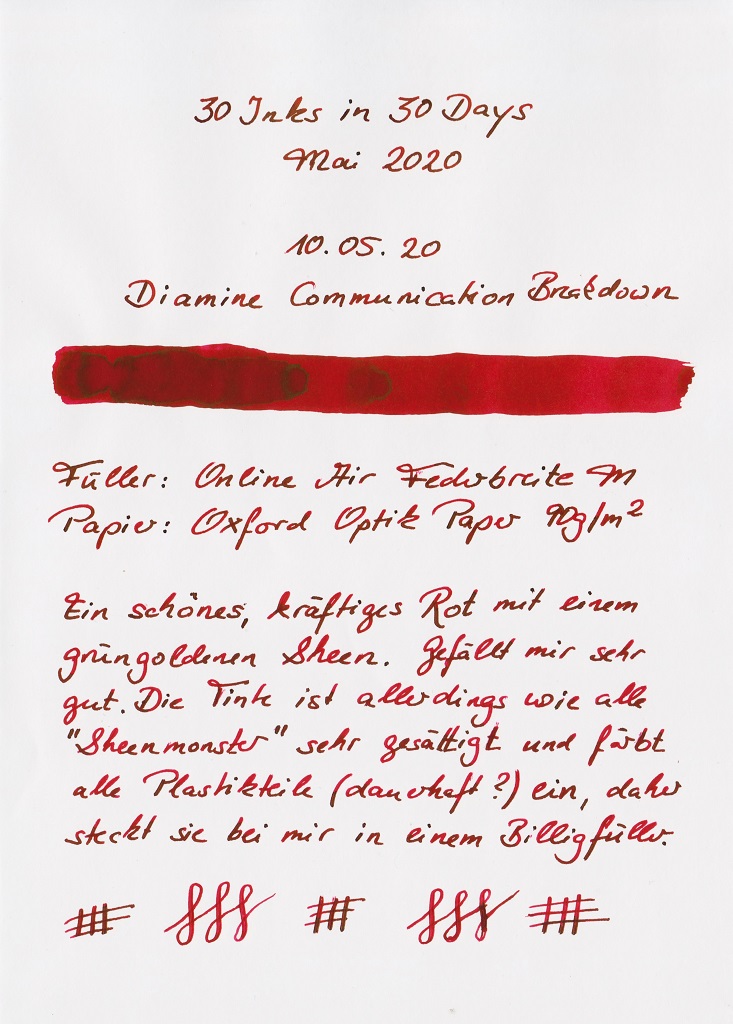 30 Inks in 30 Days
Mai 2020
10.05.20
Diamine Communication Breakdown
Füller: Online Air Federbreite M
Papier: Oxford Optik Paper 90g/m²
Ein schönes, kräftiges Rot mit einem
grüngoldenen Sheen. Gefällt mir sehr
gut. Die Tinte ist allerdings wie alle
"Sheenmonster" sehr gesättigt und färbt
alle Plastikteile (dauerhaft?) ein, daher
steckt sie bei mir in einem Billigfüller.